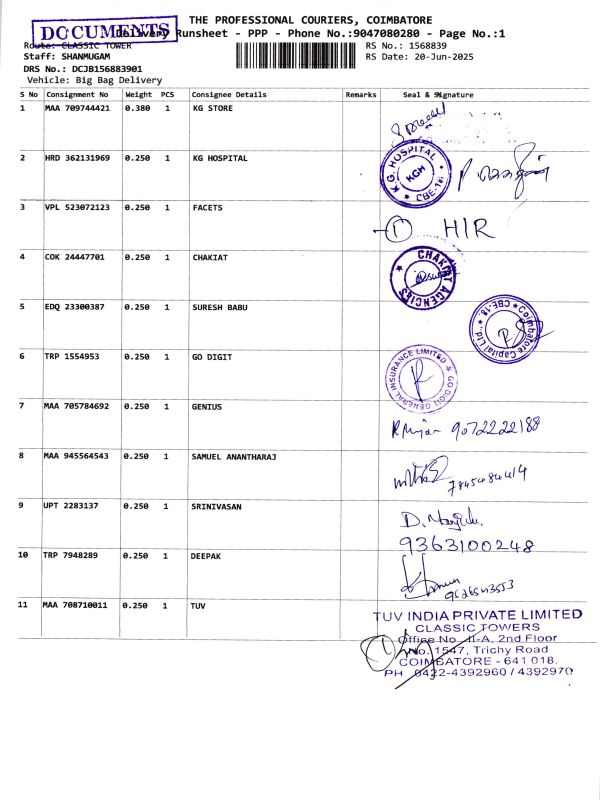 THE PROFESSIONAL COURIERS, COIMBATORE
DOCUMENTS
Delivery Runsheet - PPP - Phone No.:9047080280 - Page No.:1
Route: CLASSIC TOWER
RS No.: 1568839
Staff: SHANMUGAM
RS Date: 20-Jun-2025
DRS No.: DCJB156883901
Vehicle: Big Bag Delivery
S No Consignment No Weight PCS Consignee Details Remarks Seal & Signature
1 MAA 709744421 0.380 1 KG STORE
2 HRD 362131969 0.250 1 KG HOSPITAL
K.G. HOSPITAL KGH CBE-18
3 VPL 523072123 0.250 1 FACETS
1 HIR
4 COK 24447701 0.250 1 CHAKIAT
CHAKIAT AGENCIES
5 EDQ 23300387 0.250 1 SURESH BABU
Coimbatore Capital Ltd., CBE-18.
6 TRP 1554953 0.250 1 GO DIGIT
GO DIGIT GENERAL INSURANCE LIMITED
7 MAA 705784692 0.250 1 GENIUS
9072222188
8 MAA 945564543 0.250 1 SAMUEL ANANTHARAJ
9 UPT 2283137 0.250 1 SRINIVASAN
9363100248
10 TRP 7948289 0.250 1 DEEPAK
11 MAA 708710011 0.250 1 TUV
TUV INDIA PRIVATE LIMITED
CLASSIC TOWERS
Office No. II-A, 2nd Floor
No. 1547, Trichy Road
COIMBATORE - 641 018.
PH 0422-4392960 / 4392970